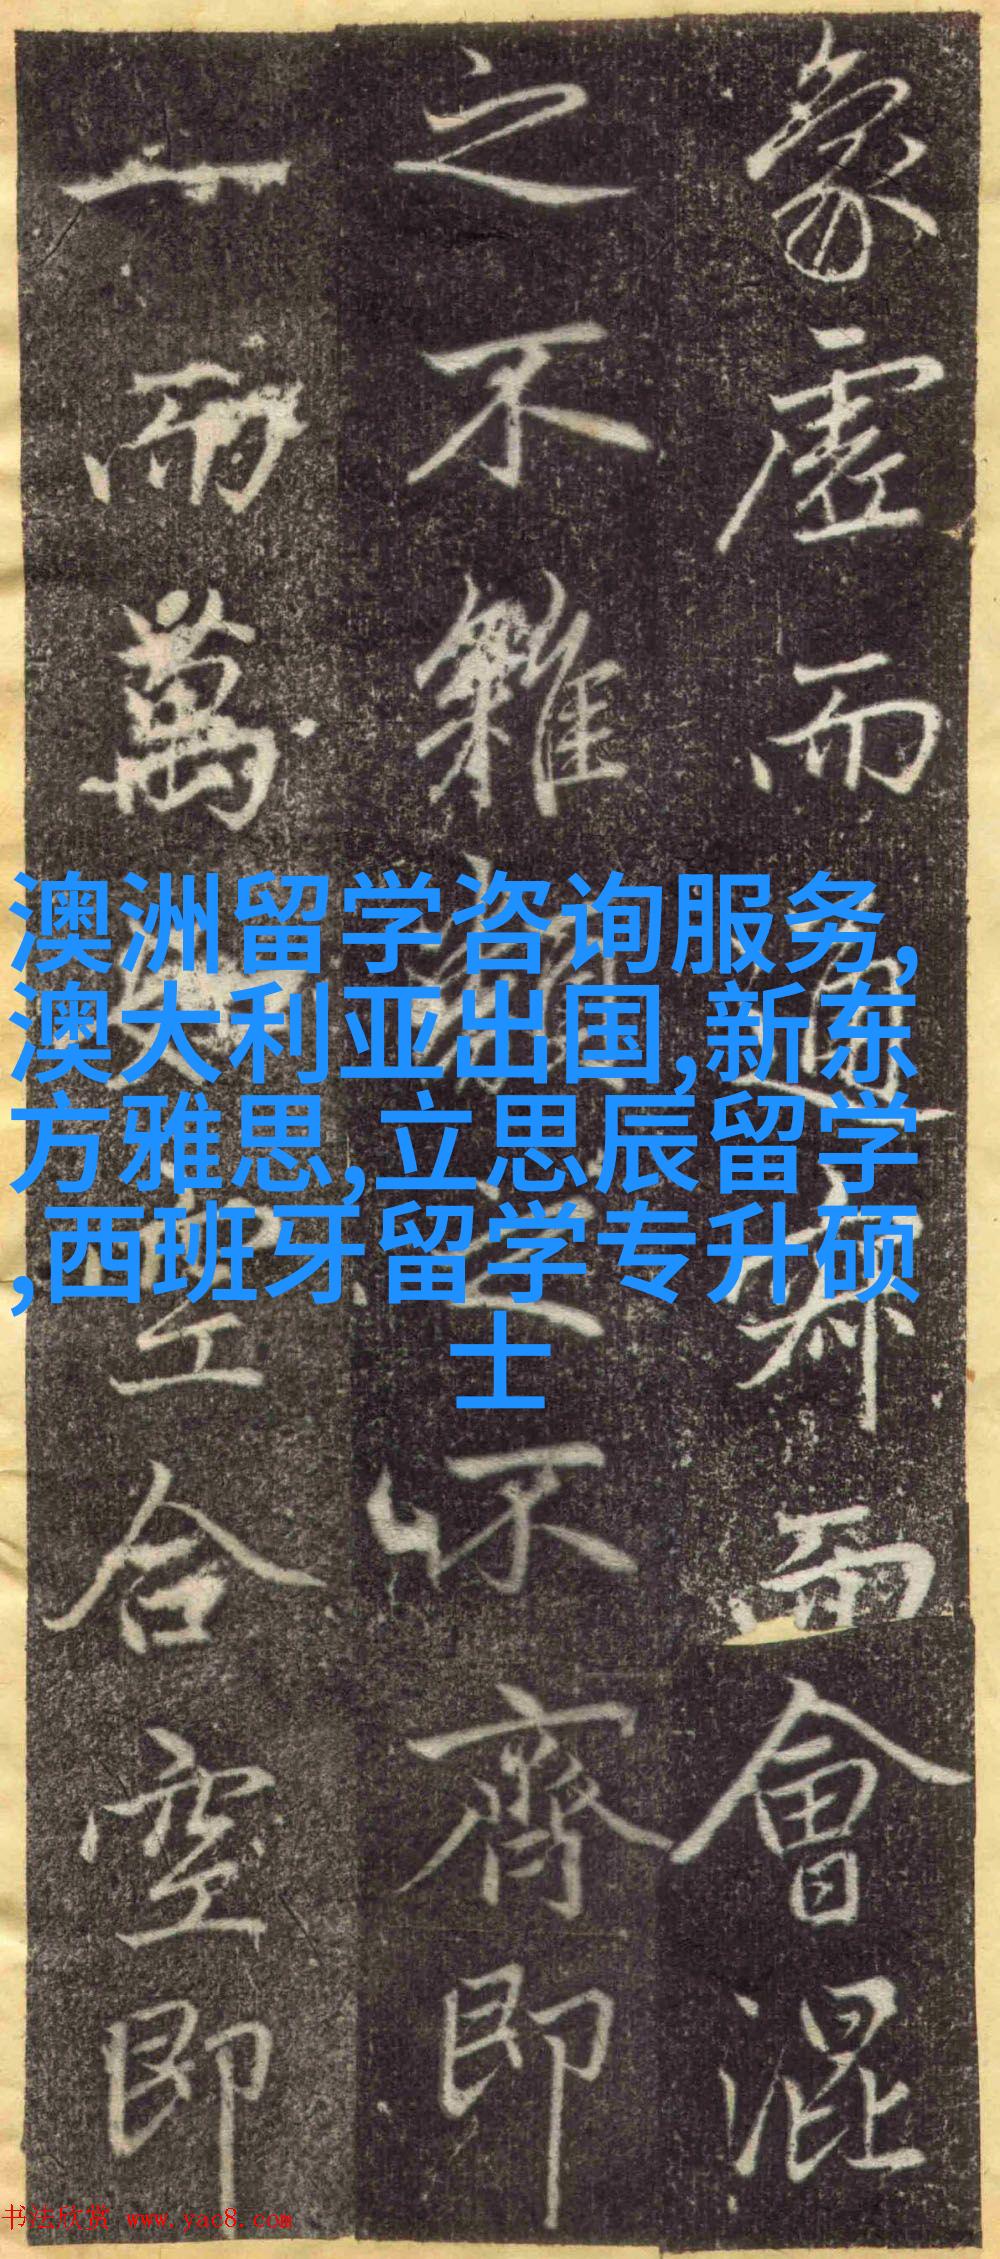 象虛而通而會混
之不雜之不齊即
一而萬空合空即
澳洲留学咨询服务,
澳大利亚出国,新东
方雅思,立思辰留学
,西班牙留学专升硕
士
书法欣赏 www.yac8.com